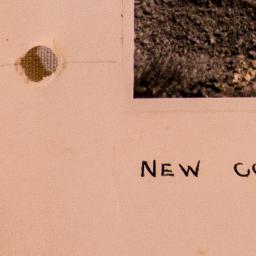 NEW CO